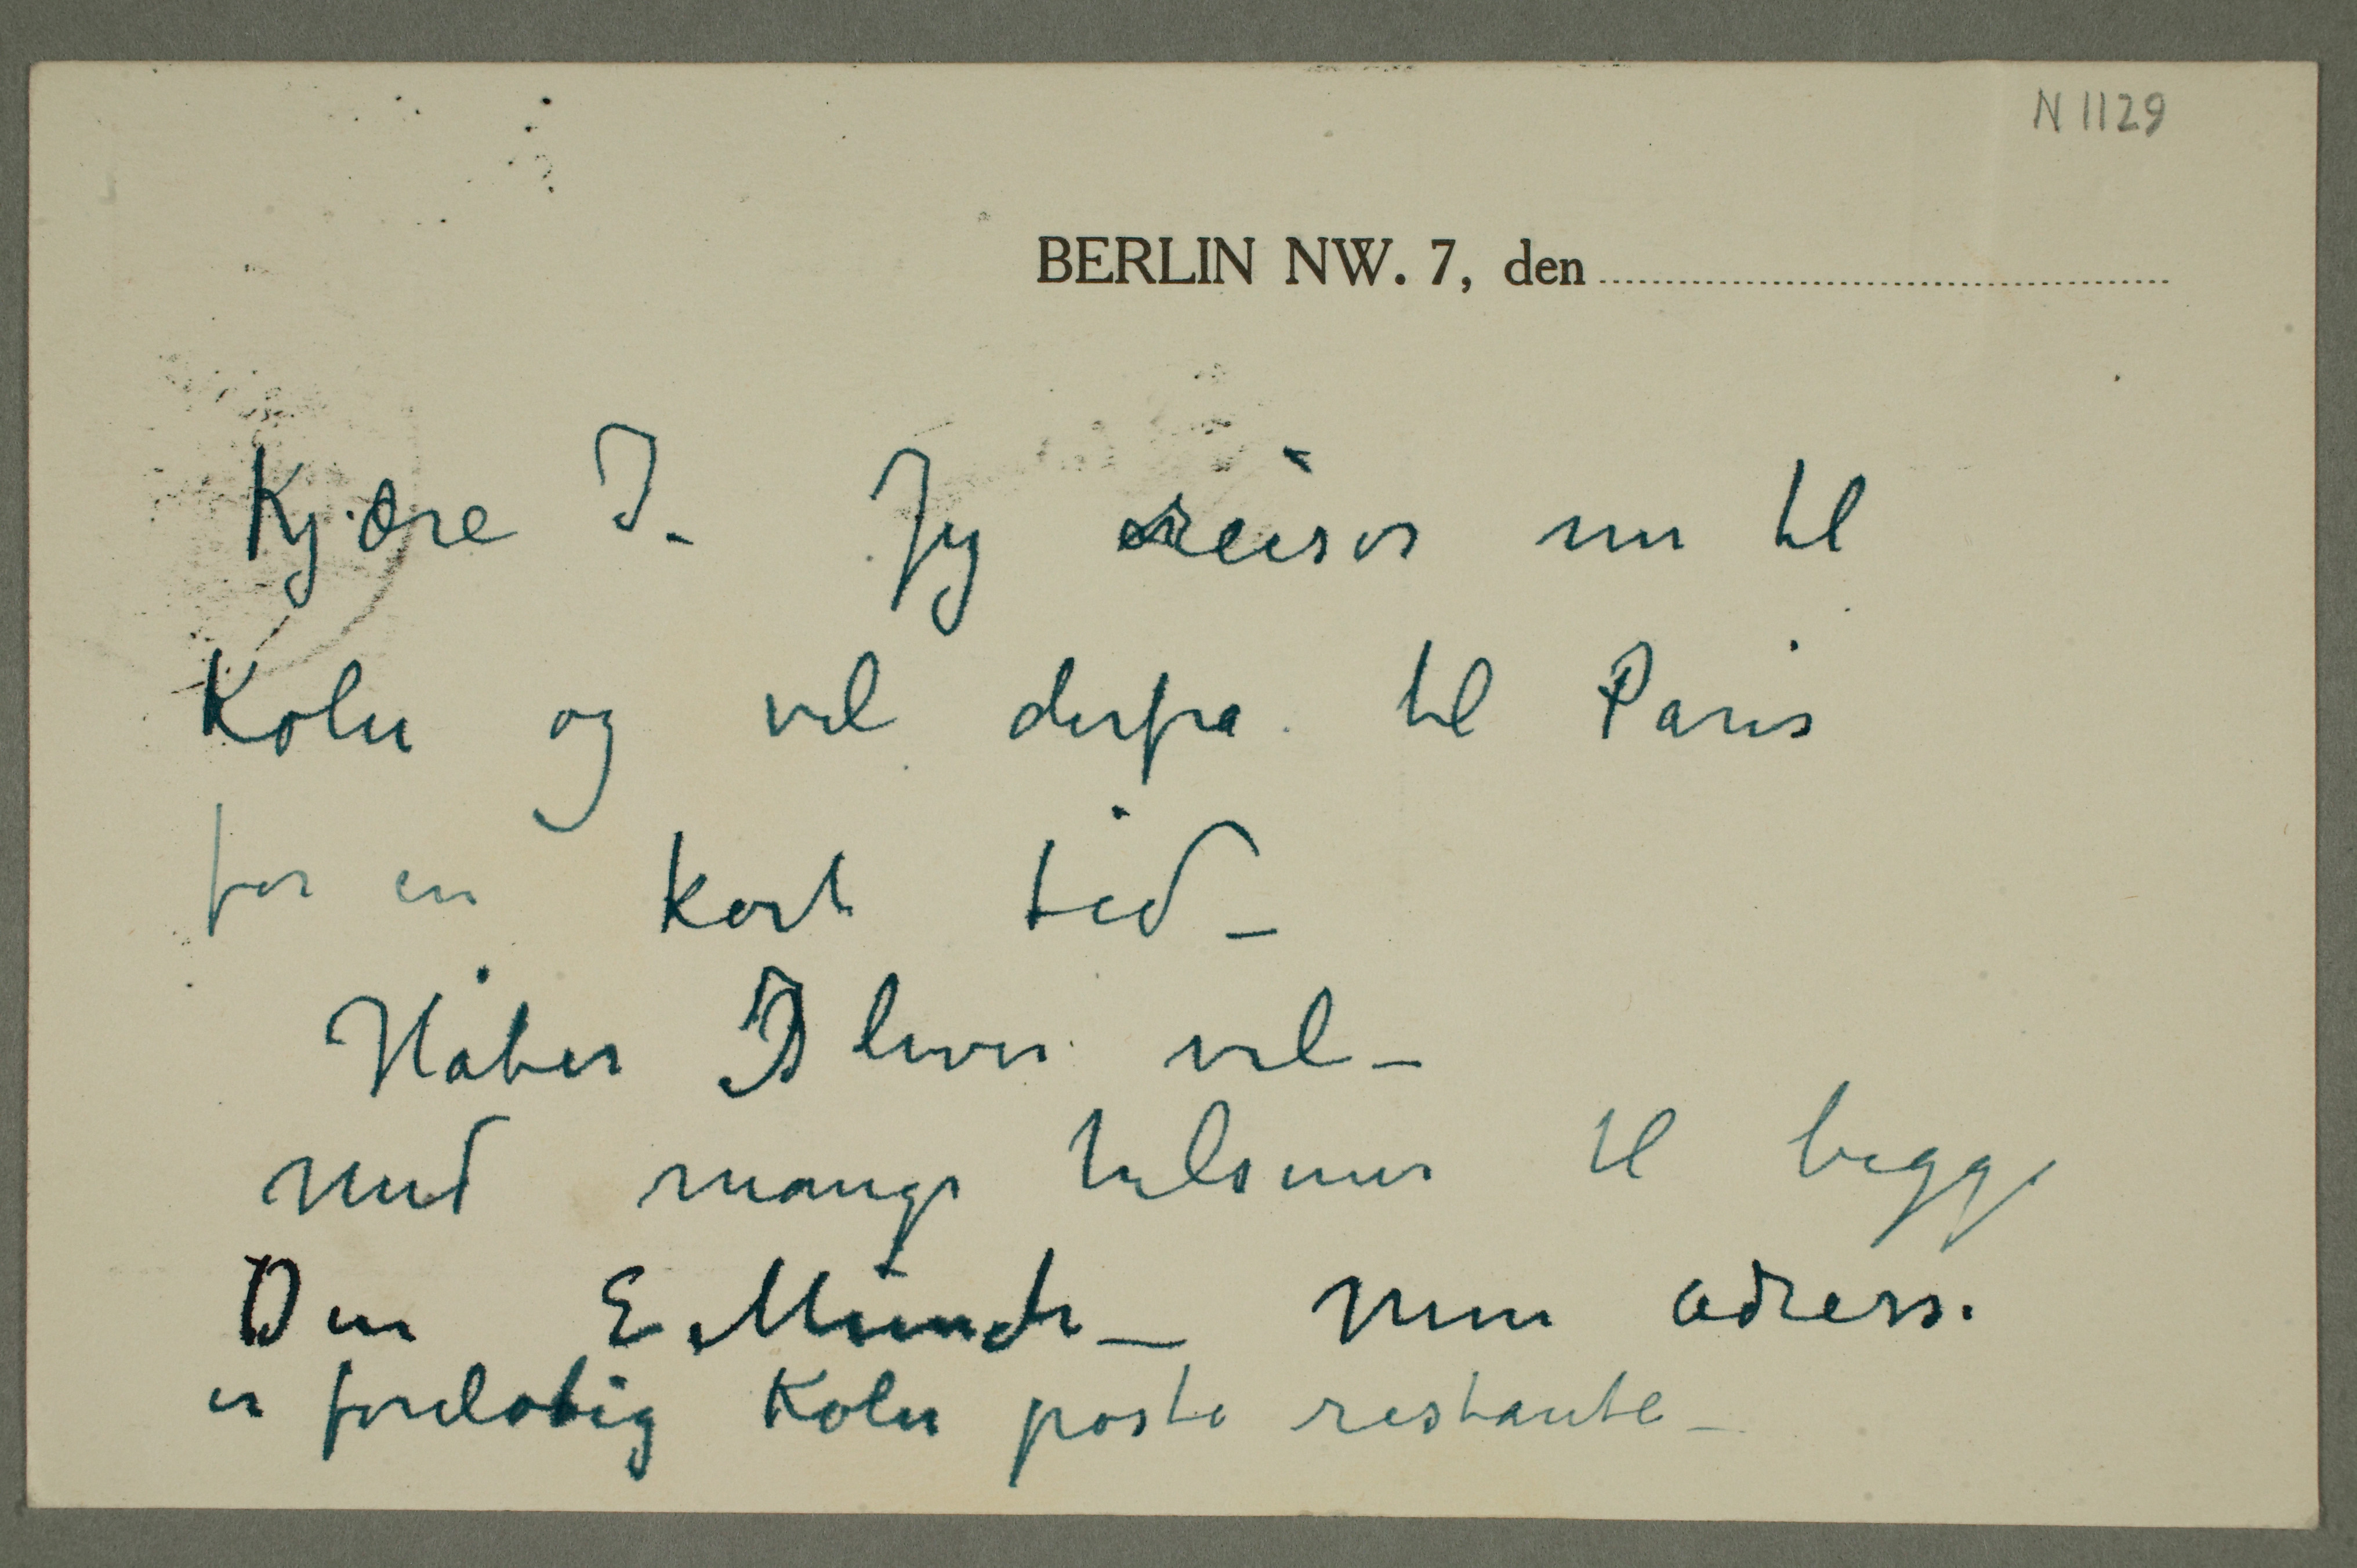 N 1129
BERLIN NW. 7, den
Kjære I. Jeg reiser nu til
Køln og vel derfra til Paris
for en kort tid –
Håber I lever vel –
med mange hilsener til begge
Din E. Munch – Min adresse
er foreløbig Køln poste restante –